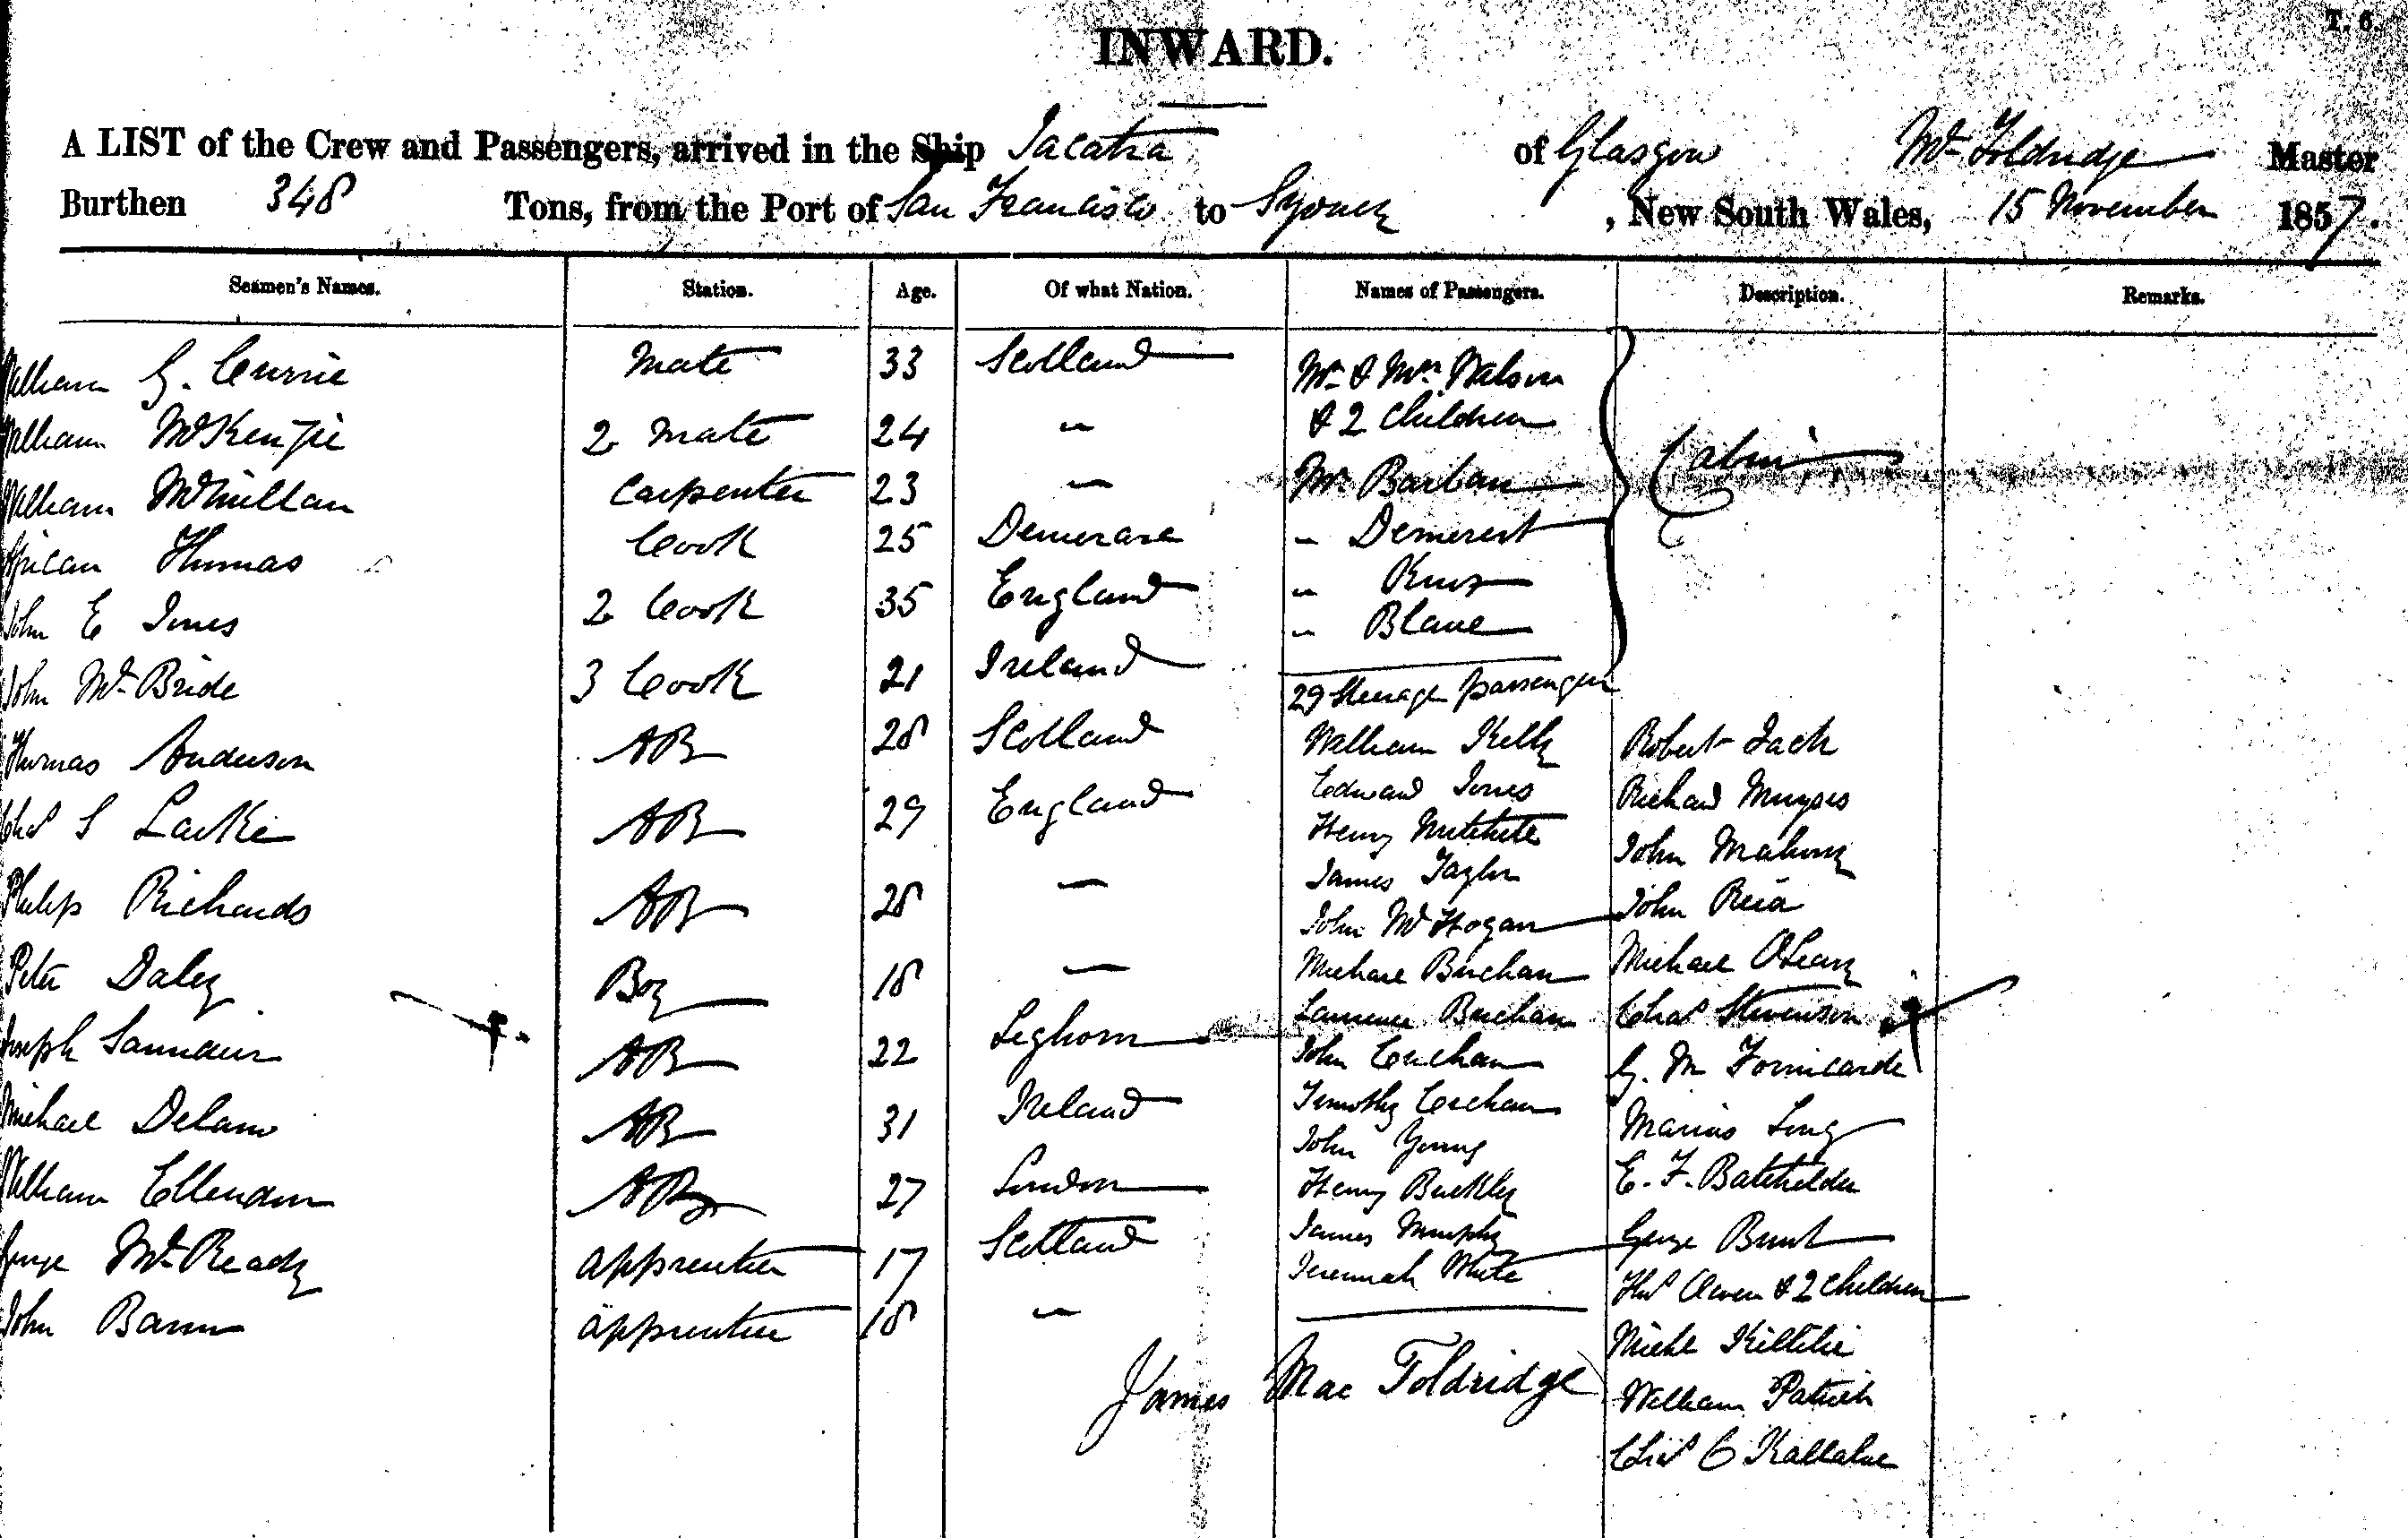 T. 6.
INWARD.
A LIST of the Crew and Passengers, arrived in the Ship Jacatra of Glasgow Mc Foldridge Master
Burthen 348 Tons, from the Port of San Francisco to Sydney, New South Wales, 15 November 1857.
Seamen's Names. Station. Age. Of what Nation. Names of Passengers. Description. Remarks.
William G. Currie Mate 33 Scotland Mr & Mrs Watson
& 2 Children
William McKenzie 2 Mate 24 "
Cabin
William McMillan Carpenter 23 " Mr Barban
African Thomas Cook 25 Demerara " Demerest
John E Jones 2 Cook 35 England " Knox
" Blane
John McBride 3 Cook 21 Ireland 29 Steerage passengers
Thomas Anderson AB 28 Scotland William Kelly Robert Jack
Chas S Larke AB 29 England Edward Jones Richard
Henry Mitchell John Mahony
James Taylor
Philip Richards AB 28 " John McHogan John Reid
Peter Daley Boy 18 " Michael Buchan Michael OLeary
Joseph AB 22 Leghorn Laurence Buchan Chas Stevenson
John G. M
Michael AB 31 Ireland Timothy Marius
John Young
William Ellendon AB 27 London Henry Buckley E. F. Batchelder
George McReady apprentice 17 Scotland James Murphy George Bunt
Jeremiah White Thos & 2 Children
John apprentice 18 " Michl
James Mac Foldridge William Patrick
Chas C